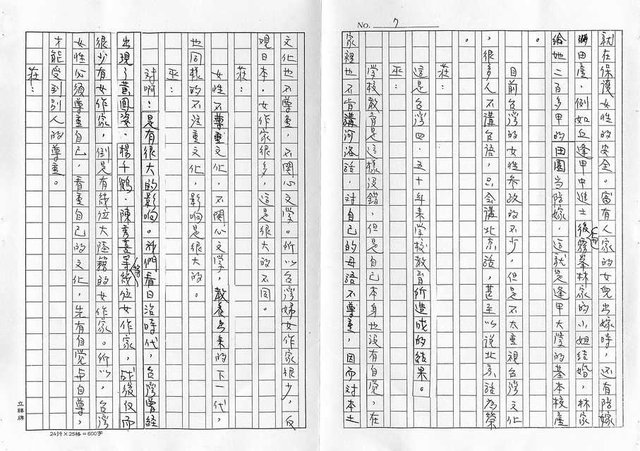 No. 7
就在保護女性的安全。富有人家的女兒出嫁時,還有陪嫁
田產,例如丘逢甲中進士後,霧峯林家的小姐結婚,林家
給她二百多甲的田園當陪嫁,這就是逢甲大學的基本校產
。
目前台灣的女性參政的不少,但是不太重視台灣文化
,很多人不講台語,只會講北京話,甚至以說北京話為榮
。
莊:
這是台灣四、五十年來學校教育所造成的結果。
巫:
學校教育是這樣沒錯,但是自己本身也沒有自覺,在
家裡也不肯講河洛話,對自己的母語不尊重,因而對本土
文化也不尊重,不關心文學。所以台灣婦女作家很少,反
觀日本,女作家很多,這是很大的不同。
莊:
女性不尊重文化,不關心文學,教養出來的下一代,
也同樣的不注重文化,影響是很大的。
巫:
對啊!是有很大的影響。我們看日治時代,台灣曾經
出現了黃鳳姿、楊千鶴、陳秀喜等幾位女作家,戰後反而
很少有女作家,倒是有幾位大陸籍的女作家。所以,台灣
女性必須尊重自己,看重自己的文化,先有自覺與自尊,
才能受到別人的尊重。
莊:
24行×25格=600字
立歸牌